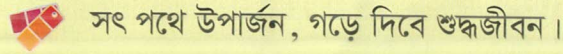 সৎ পথে উপার্জন, গড়ে দিবে শুদ্ধজীবন।